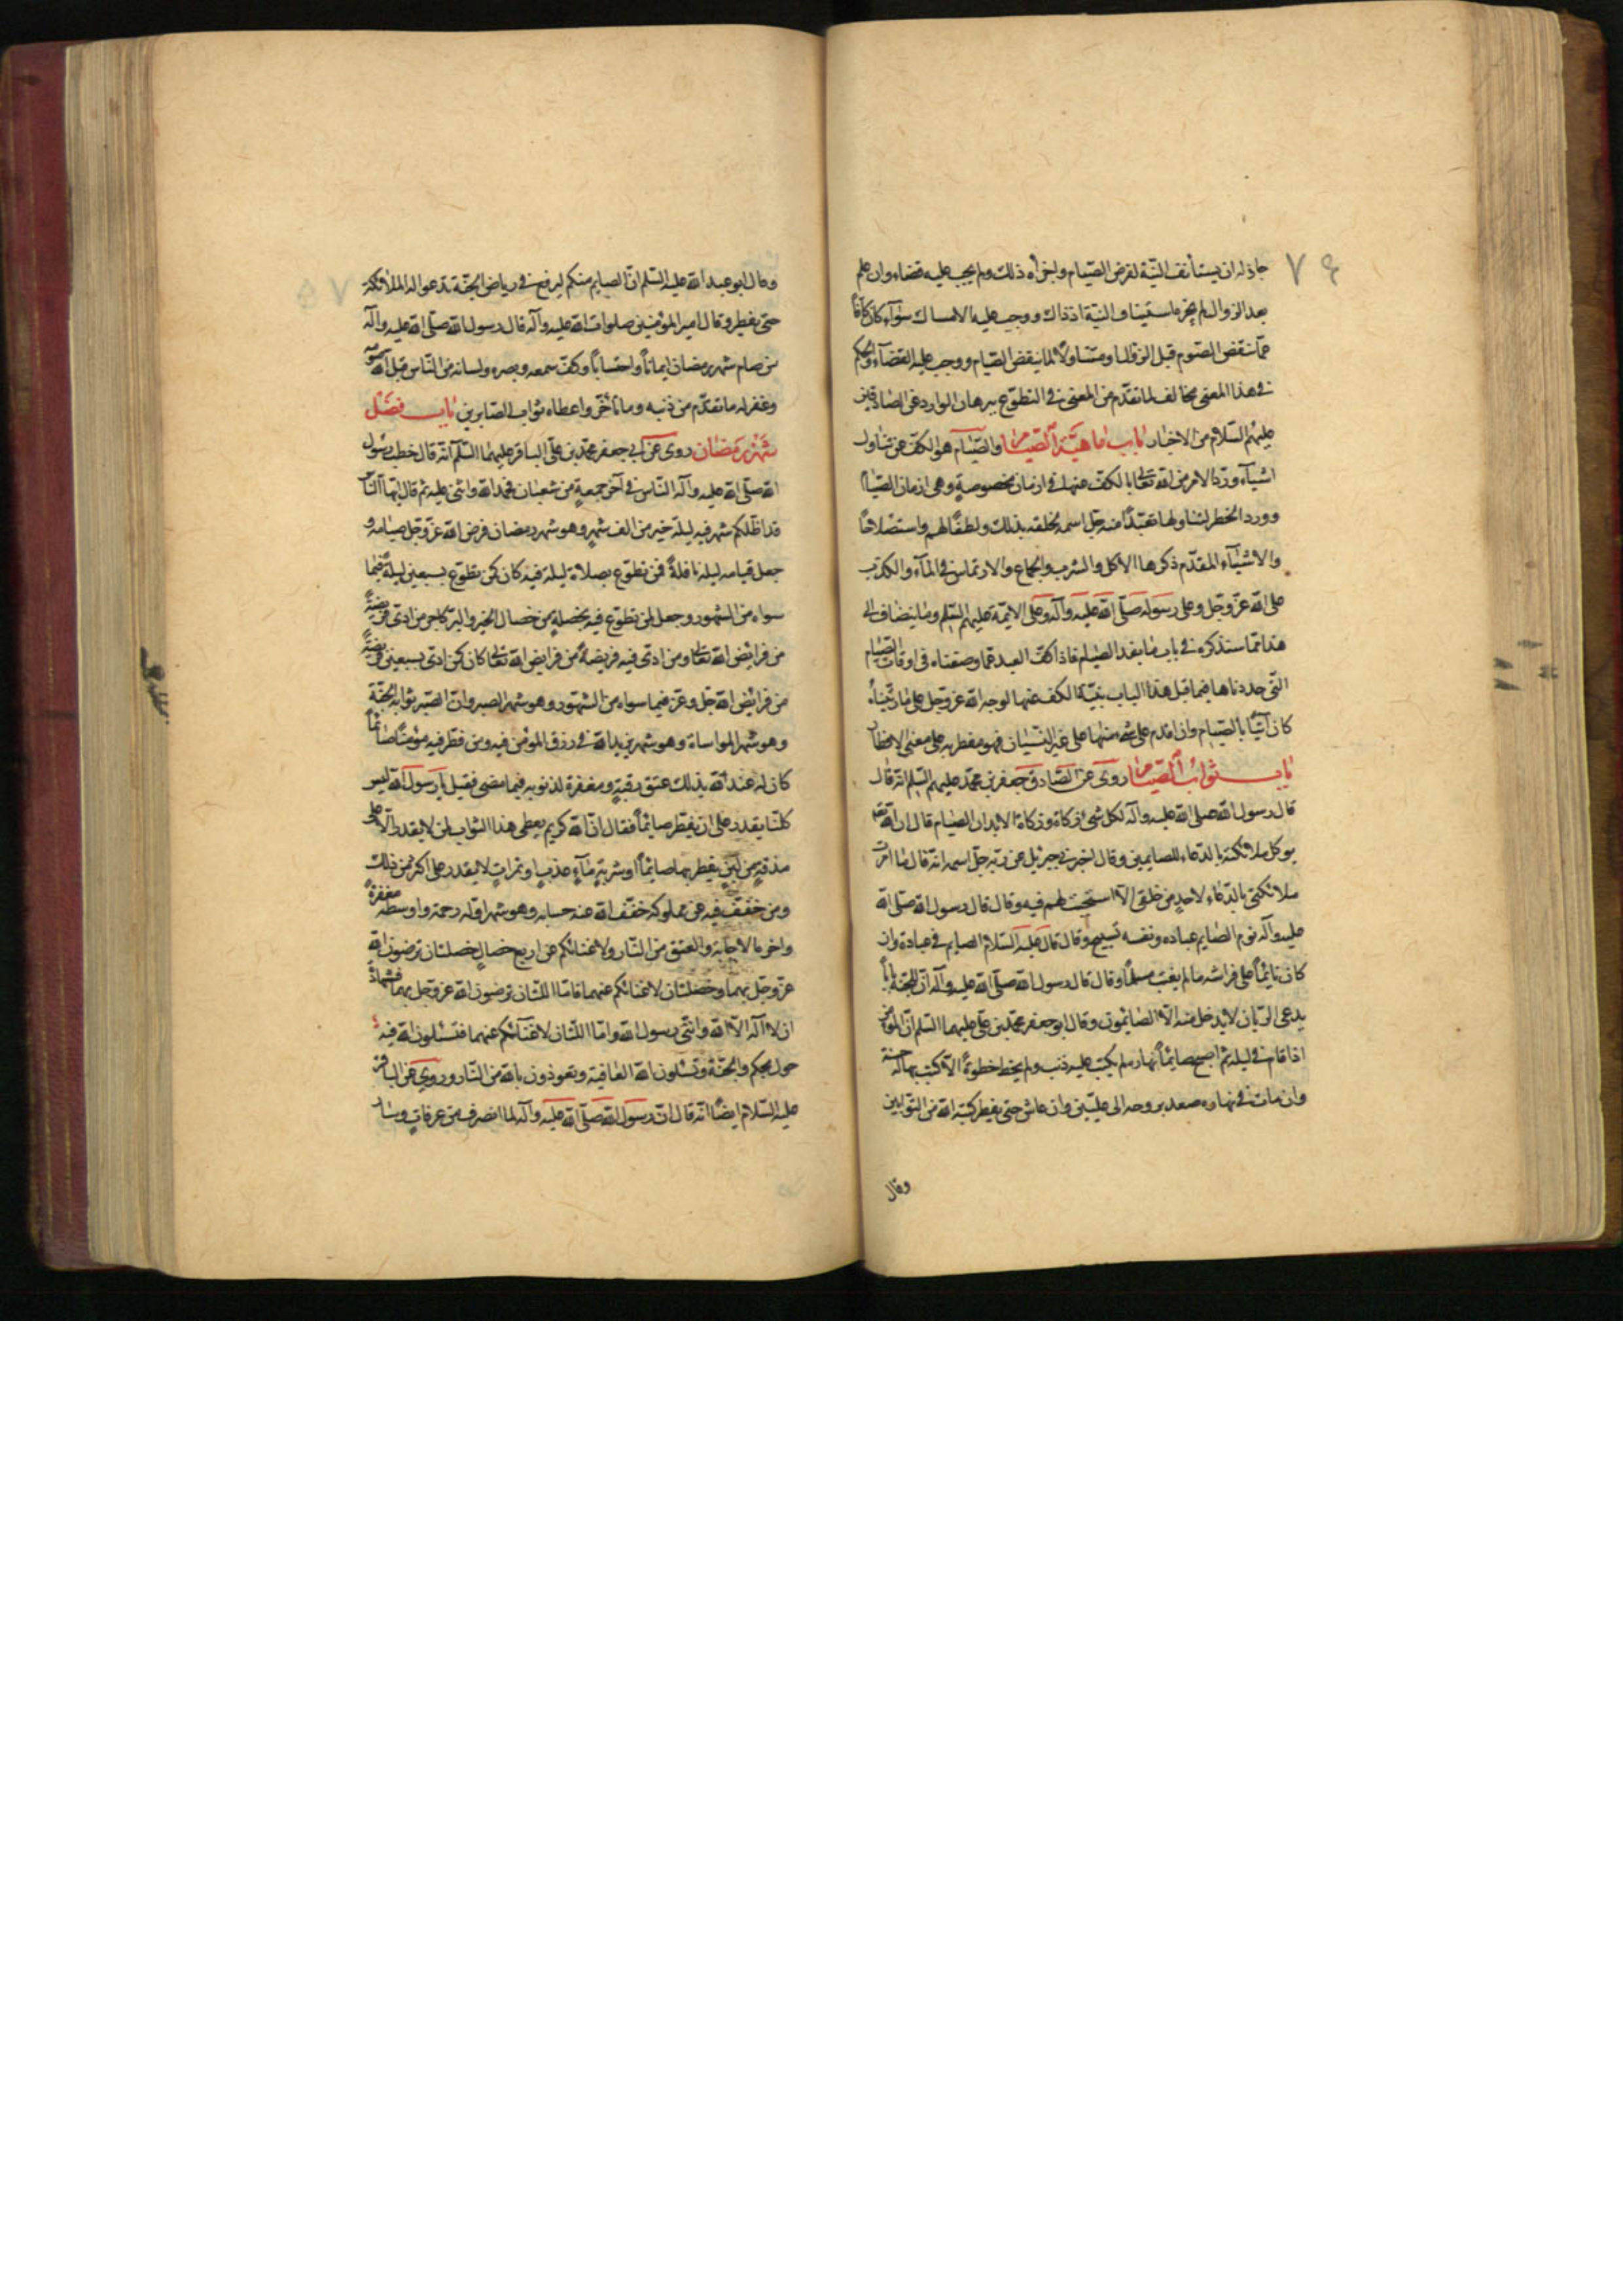 ٧٤
جاز له ان يستأنف النيّة لفرض الصّيام واجزأه ذلك ولم يجب عليه قضاء وان علم
بعد الزوال لم يجزه استيناف النيّة اذ ذاك ووجب عليه الامساك سوآء كان كافّاً
عمّا ينقض الصّوم قبل الزوال او متناولاً لما ينقض الصّيام ووجب عليه القضآء والحكم
فى هذا المعنى مخالف لما تقدّم من المعنى فى التطوّع ببرهان الوارد عن الصّادقين
عليهم السّلام من الاخبار باب ماهيّة الصّيام والصّيام هو الكفّ عن تناول
اشيآء ورد الامر من الله تعالى بالكفّ عنها فى ازمان مخصوصةٍ وهى ازمان الصّيام
وورد الحظر لتناولها تعبّداً منه جلّ اسمه لخلقه بذلك ولطفاً لهم واستصلاحاً
والاشيآء المقدّم ذكرها الاكل والشرب والجماع والارتماس فى المآء والكذب
على الله عزّ وجل وعلى رسوله صلّى الله عليه وآله وعلى الايمّة عليهم السّلم وما ينضاف الى
هذا ممّا سنذكره فى باب ما يفسد الصيام فاذا كفّ العبد عمّا وصفناه فى اوقات الصّيام
التى حددناها فيما قبل هذا الباب بنيّة الكف عنها لوجه الله عزّ وجل على ما رتّبناه
كان آتياً بالصّيام وان اقدم على شئ منها على غير النسيان فهو مفطر به على معنى الافطار
باب ثواب الصّيام روى عن الصّادق جعفر بن محمّد عليهم السّلم انّه قال
قال رسول الله صلى الله عليه وآله لكل شئ زكاة وزكاة الابدان الصّيام قال ان الله تعالى
يوكل ملائكته بالدعاء للصايمين وقال اخبرنى جبرئيل عن ربّه جلّ اسمه انّه قال ما امرت
ملائكتى بالدّعاء لاحدٍ من خلقى الّا استجبت لهم فيه وقال قال رسول الله صلّى الله
عليه وآله نوم الصّايم عبادة ونفسه تسبيح وقال قال عليه السّلام الصايم فى عبادة وان
كان نايماً على فراشه ما لم يغتب مسلماً وقال قال رسول الله صلّى الله عليه وآله انّ للجنّة باباً
يدعى الريّان لا يدخل منه الّا الصّايمون وقال ابو جعفر محمّد بن علّى عليهما السّلم انّ المؤمن
اذا قام فى ليله ثم اصبح صايماً نهاره لم يكتب عليه ذنب ولم يخط خطوةً الّا كتب بها له حسنة
وان مات فى نهاره صعد بروحه الى عليّين وان عاش حتى يفطر كتبه الله من التوّابين
وقال
وقال ابو عبد الله عليه السّلم انّ الصايم منكم ليرفع فى رياض الجنّة تدعو اله الملائكة
حتى يفطر وقال امير المؤمنين صلوات الله عليه وآله قال رسول الله صلّى الله عليه وآله
من صام شهر رمضان ايماناً واحتساباً وكفّ سمعه وبصره ولسانه من النّاس قبل الله صومه
وغفر له ما تقدّم من ذنبه وما تأخّر واعطاه ثواب الصّابرين باب فضل
شهر رمضان روى عن ابى جعفر محمّد بن علّى الباقر عليهما السّلم انّه قال خطب رسول
الله صلّى الله عليه وآله النّاس فى آخر جمعةٍ من شعبان فحمد الله واثنى عليه ثم قال ايّها النّاس
قد اظلّكم شهر فيه ليلة خير من الف شهرٍ وهو شهر رمضان فرض الله عزّ وجل صيامه و
جعل قيام ليله نافلةً فمن تطوّع بصلاة ليلة فيه كان كمن تطوّع بسبعين ليلةً فيما
سواه من الشهور وجعل لمن تطوّع فيه بخصلةٍ من خصال الخير والبرّ كاجر من ادّى فريضة
من فرايض الله تعالى ومن ادّى فيه فريضةً من فرايض الله تعالى كان كمن ادّى سبعين فريضةً
من فرايض الله جلّ وعزّ فيما سواه من الشهور وهو شهر الصبر وانّ الصّبر ثوابه الجنّة
وهو شهر المواساة وهو شهر يزيد الله فى رزق المؤمن فيه ومن فطّر فيه مؤمناً صائماً
كان له عند الله بذلك عتق رقبةٍ ومغفرة لذنوبه فيما مضى فقيل يا رسول الله ليس
كلّنا يقدر على ان يفطّر صايماً فقال انّ الله كريم يعطى هذا الثواب لمن لا يقدر الّا على
مذقةٍ من لبنٍ يفطر بها صايماً او شربةٍ مآءٍ عذبٍ او تمراتٍ لا يقدر على اكثر من ذلك
ومن خفّف فيه عن مملوكه خفّف الله عنه حسابه وهو شهر اوّله رحمة واوسطه مغفرةً
واخره الاجابة والعتق من النّار ولا غنائكم عن اربع خصالٍ خصلتان ترضون الله
عزّ وجلّ بهما وخصلتان لا غنائكم عنهما فامّا اللتان ترضون الله عزّ وجلّ بهما فشهادة
ان لا اله الّا الله وانّى رسول الله وامّا اللتان لا غنآئكم عنهما فتسئلون الله فيه
حوايجكم والجنّة وتسئلون الله العافية وتعوذون بالله من النّار وروى عن الباقر
عليه السّلام ايضاً انّه قال انّ رسول الله صلّى الله عليه وآله لما انصرف من عرفاتٍ وسار